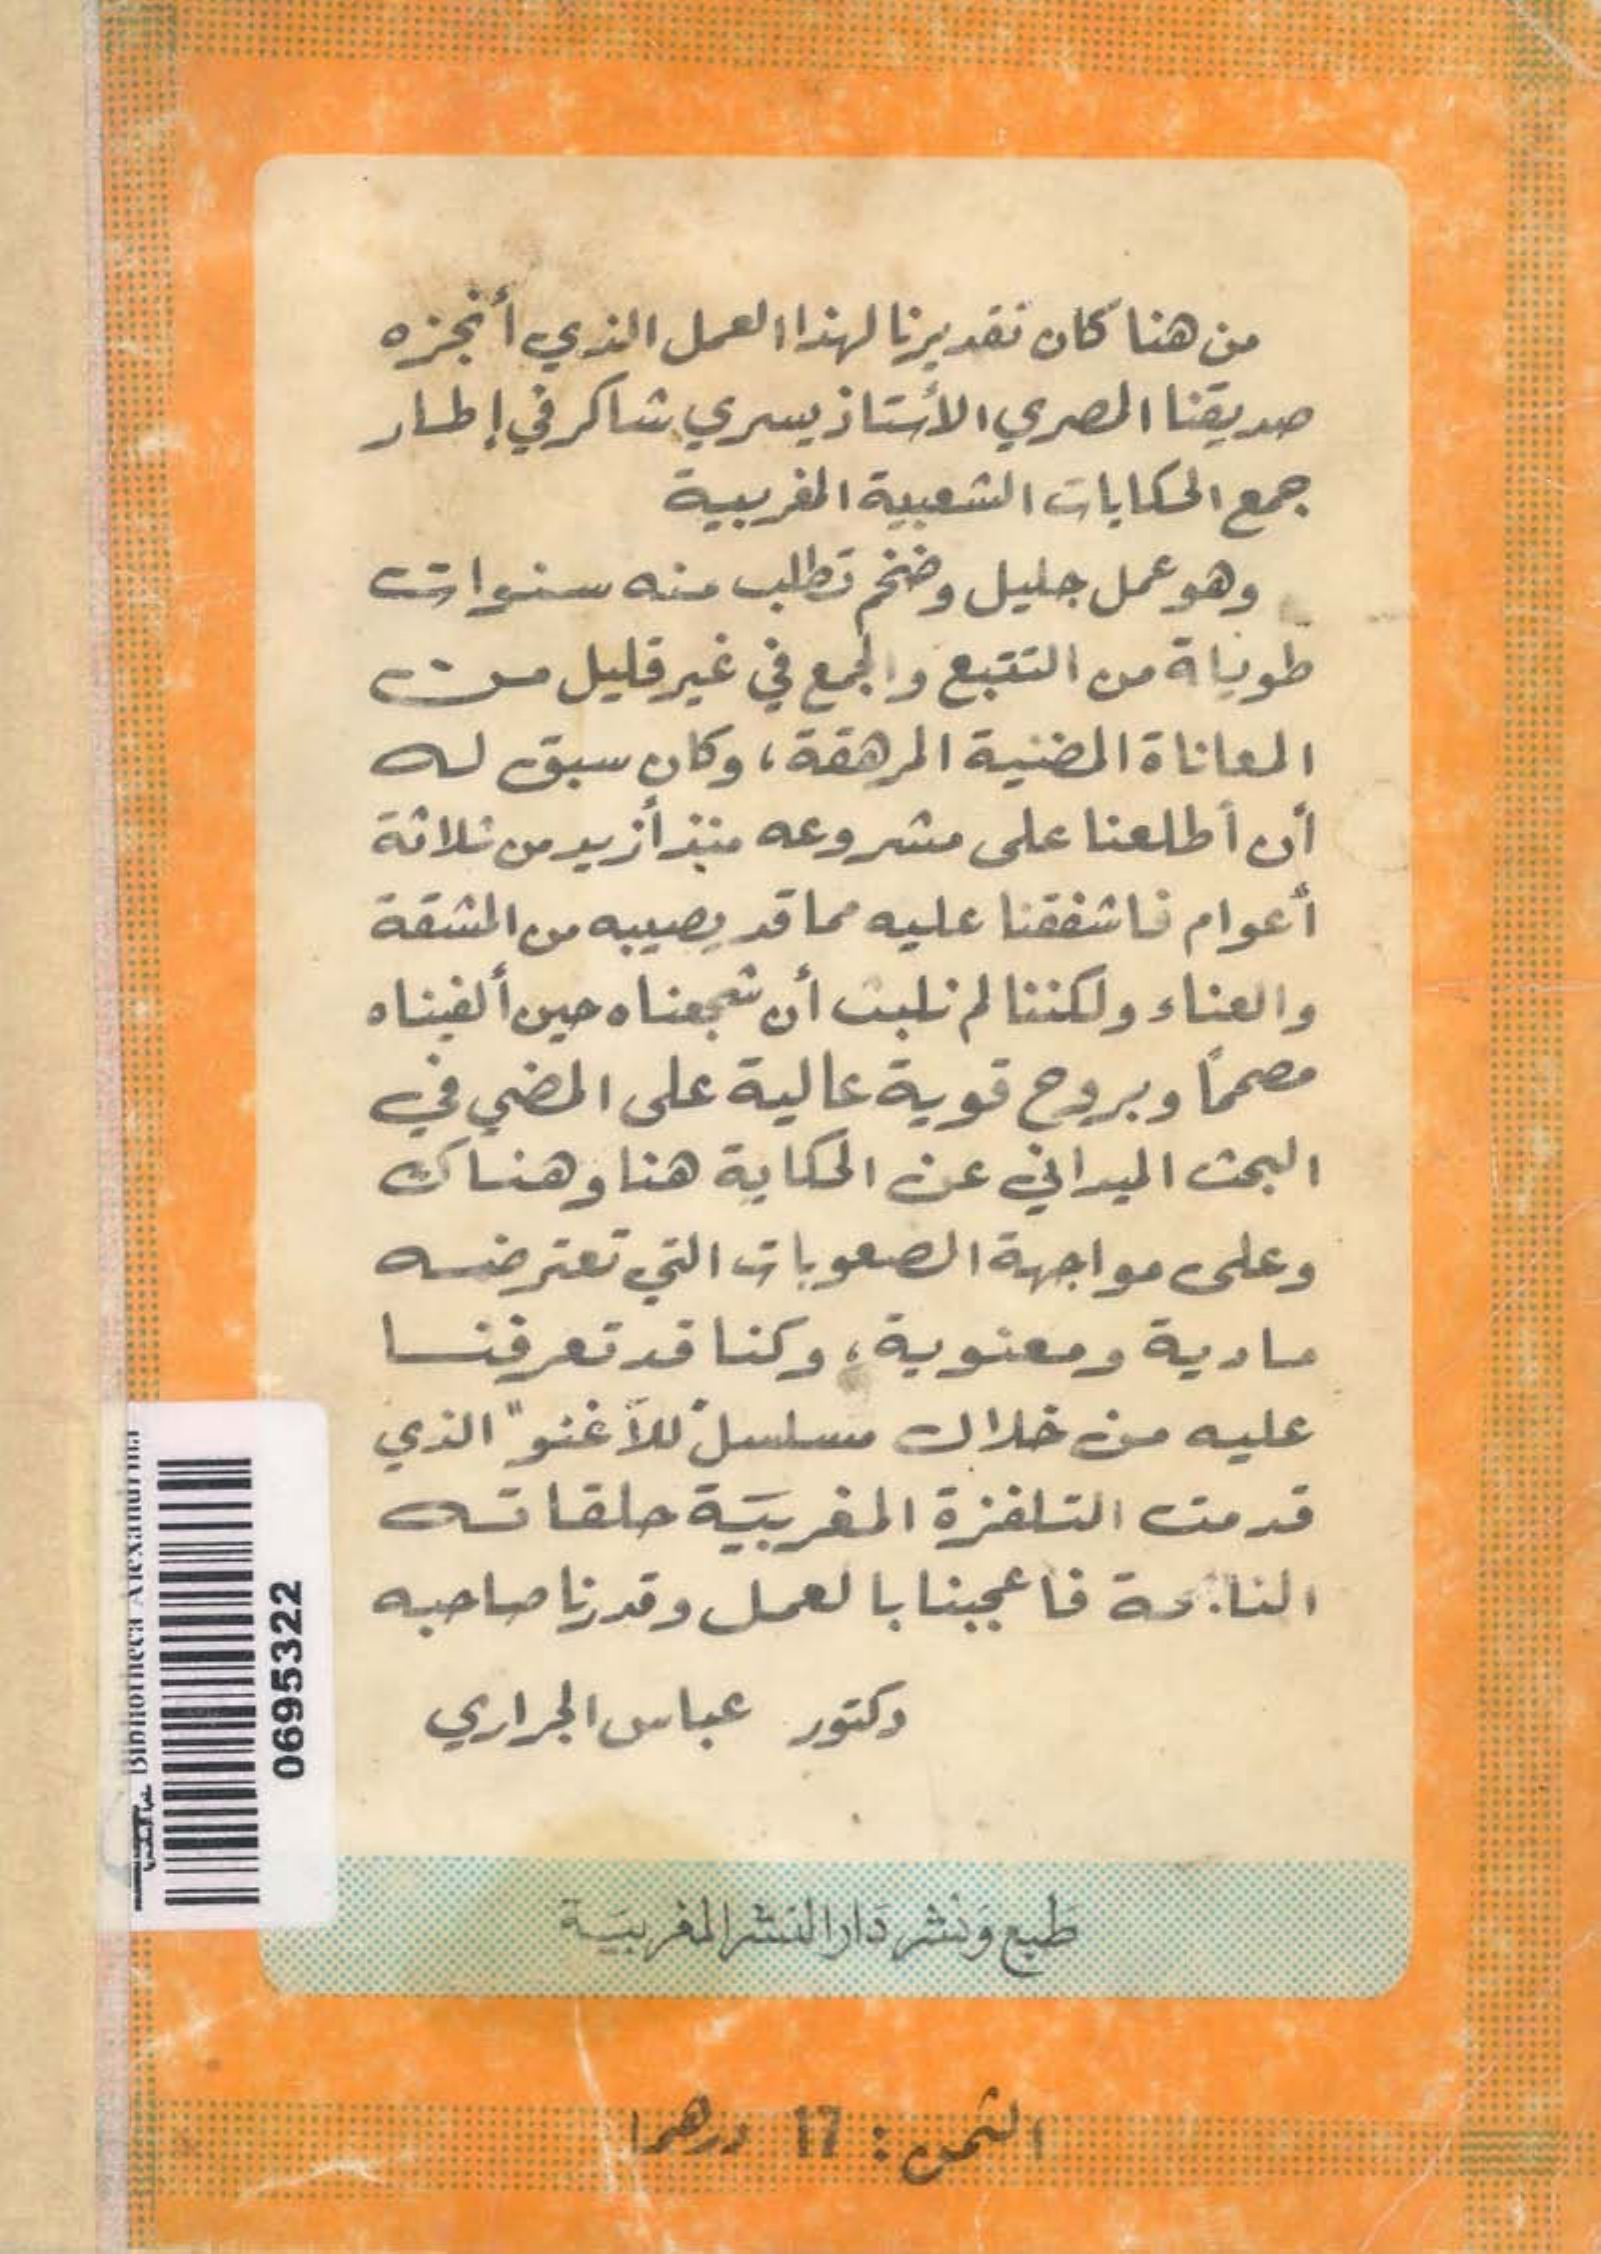 من هنا كان تقديرنا لهذا العمل الذي أنجزه
صديقنا المصري الأستاذ يسري شاكر في إطار
جمع الحكايات الشعبية المغربية
وهو عمل جليل وضخم تطلب منه سنوات
طويلة من التتبع والجمع في غير قليل من
المعاناة المضنية المرهقة، وكان سبق له
أن أطلعنا على مشروعه منذ أزيد من ثلاثة
أعوام فاشفقنا عليه مما قد يصيبه من المشقة
والعناء ولكننا لم نلبث أن شجعناه حين ألفيناه
مصممًا وبروح قوية عالية على المضي في
البحث الميداني عن الحكاية هنا وهناك
وعلى مواجهة الصعوبات التي تعترضه
مادية ومعنوية، وكنا قد تعرفنا
عليه من خلال مسلسل "للاغنو" الذي
قدمت التلفزة المغربيَة حلقاته
الناجحة فاعجبنا بالعمل وقدرنا صاحبه
دكتور عباس الجراري
Bibliotheca Alexandrina
0695322
طَبع وَنشر دَار النشر المغربيَة
الثمن : 17 درهما